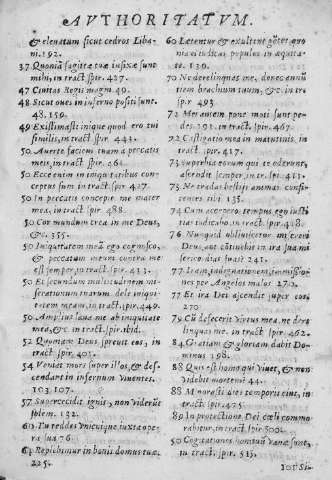 AVTHORITATVM.
& elevatum sicut cedros Liba-
ni. 192.
37. Quoniã sagittæ tuæ infixæ sunt
mihi, in tract. spir. 427.
47 Civitas Regis magni 49.
48 Sicut oves in inferno positi sunt.
48. 159.
49 Existimasti inique quod ero tui
similis, in tract. spir. 443.
50 Averte faciem tuam a peccatis
meis, in tract. spir. 461.
50 Ecce enim in iniquitatibus con-
ceptus sum in tract. spir. 427.
50 In peccatis concepit me mater
mea, in tract. spir. 488.
50 Cor mundum crea in me Deus,
&c. 355.
50 Iniquitatem meã ego cognosco,
& peccatum meum contra me
est semper, in tract. spir. 433.
50 Et secundum multitudinem mi-
serationum tuarum dele iniqui-
tatem meam, in tract. spir. 449.
50 Amplius lava me ab iniquitate
mea, &c. in tract. spir. ibid.
52 Quoniam Deus sprevit eos, in
tract. spir. 403.
54 Veniat mors super illos, & des-
cendant in infernum viventes.
103. 107.
57 Supercecidit ignis, non viderũt
solem. 132.
61 Tu reddes unicuique juxta ope-
ra sua 76.
64 Replebimur in bonis domus tuæ.
225.
66 Lætentur & exultent gẽtes quo-
niã judicas populos in æquita-
te. 130.
70 Ne derelinquas me, donec annũ-
tiem brachium tuum, &c. in tra
spir. 493
72 Mei autem pene moti sunt pe-
des 191. in tract. spir. 467.
72 Castigatio mea in matutinis, in
tract. spir. 417.
73 Superbia eorum qui te oderunt,
ascendit semper, in tract. spir.
73 Ne tradas bestiis animas confi-
centes tibi. 135.
74 Cum accepero tempus ego justi-
tias judicabo, in tract. spir. 418.
76 Nunquid obliviscetur misereri
Deus, aut cõtinebit in ira sua mi
sericordias suas? 241.
77 Iram, indignationem, immissiõ-
nes per Angelos malos 270.
77 Et ira Dei ascendit super eos,
270.
79 Cũ defecerit virtus mea, ne dere
linquas me. in tract. spir. 462.
84 Gratiam & gloriam dabit Do-
minus 198.
88 Quis est homo qui vivet, & non
videbit mortem? 44.
88 Minorasti dies temporis eius, in
tract. spir. 475.
89 In protectione Dei cœli commo-
rabitur, in tract. spir. 500.
50 Cogitationes hominũ vanæ sunt,
in tract. spir. 515.
101 Si-